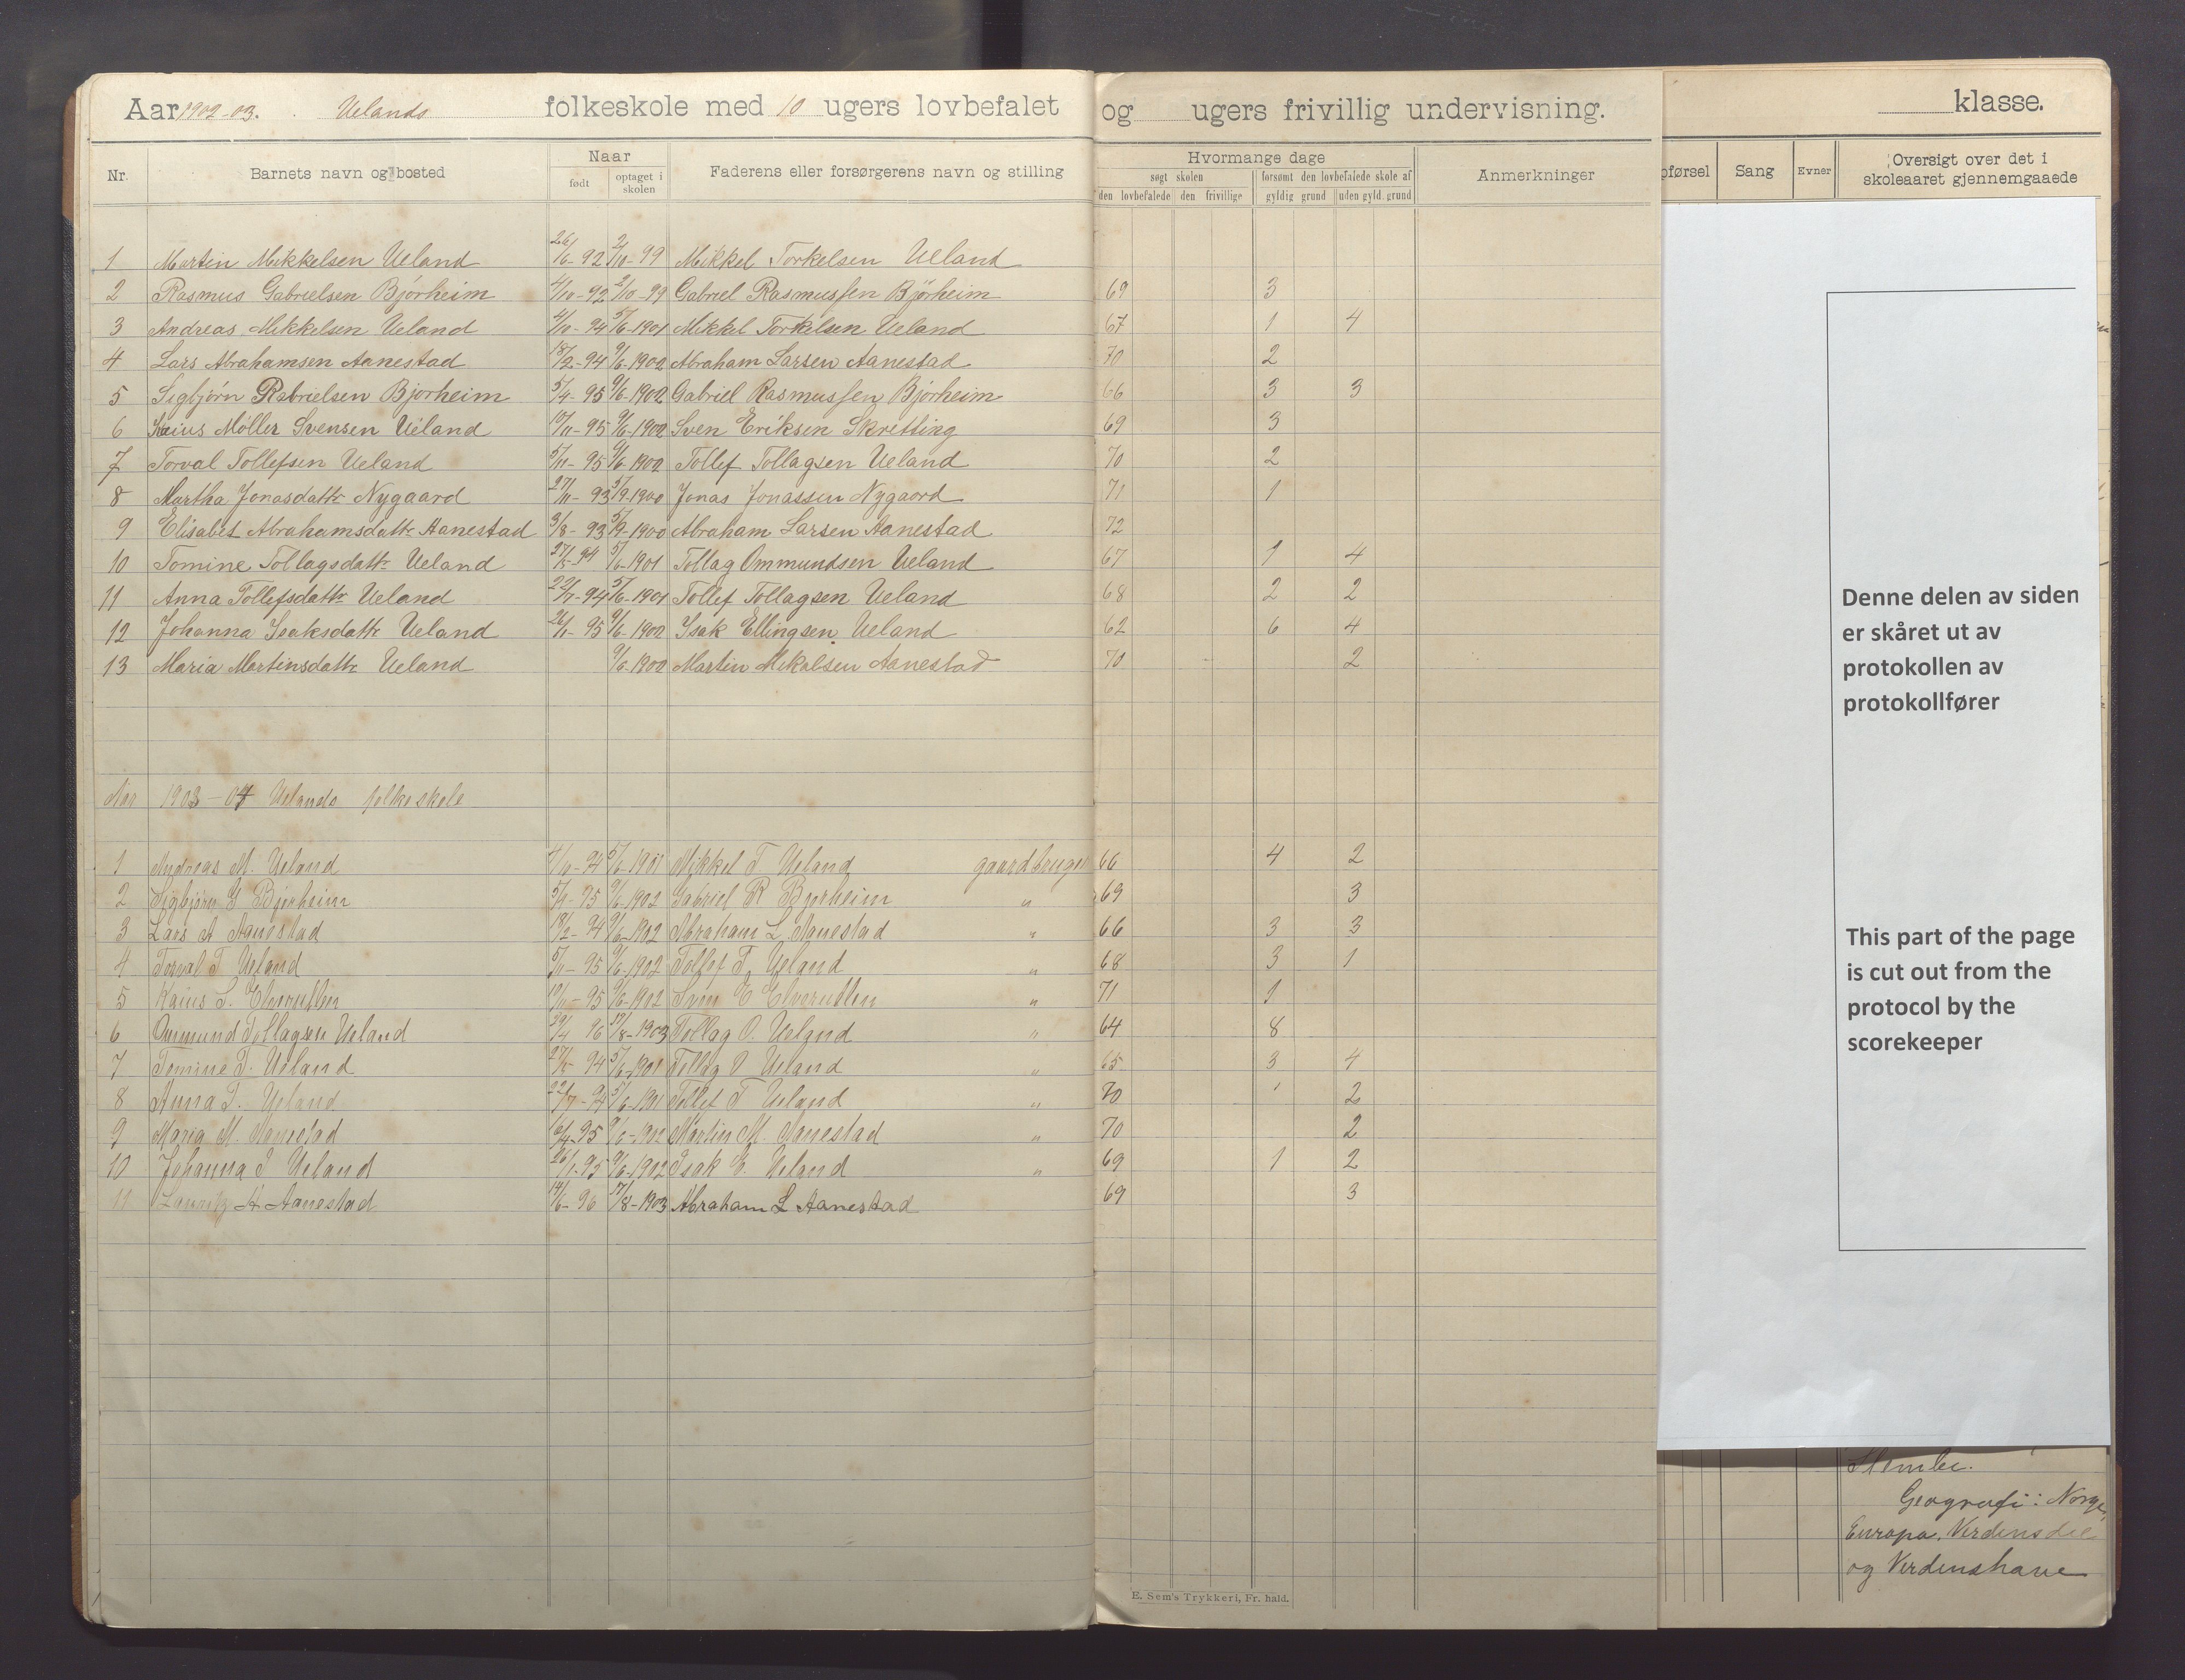 Aar 1902-03. Uelands folkeskole med 10 ugers lovbefalet og ugers frivillig undervisning. klasse.
Nr. Barnets navn og bosted Naar født optaget i skolen Faderens eller forsørgerens navn og stilling Hvormange dage søgt skolen den lovbefalede den frivillige forsømt den lovbefalede skole af gyldig grund uden gyld. grund Anmerkninger førsel Sang Evner Oversigt over det i skoleaaret gjennemgaaede
1 Martin Mikkelsen Ueland 26/6-92 2/10-99 Mikkel Torkelsen Ueland
2 Rasmus Gabrielsen Bjørheim 4/10-92 2/10-99 Gabriel Rasmussen Bjørheim 69 3
3 Andreas Mikkelsen Ueland 4/10-94 5/6-1901 Mikkel Torkelsen Ueland 67 1 4
4 Lars Abrahamsen Aanestad 18/2-94 9/6-1902 Abraham Larsen Aanestad 70 2
5 Sigbjørn Gabrielsen Bjorheim 5/4-95 9/6-1902 Gabriel Rasmussen Bjørheim 66 3 3
6 Kaius Møller Svensen Ueland 10/11-95 9/6-1902 Sven Eriksen Skretting 69 3
7 Torval Tollefsen Ueland 5/11-95 9/6-1902 Tollef Tollagsen Ueland 70 2
8 Martha Jonasdattr Nygaard 27/11-93 5/9-1900 Jonas Jonassen Nygaard 71 1
9 Elisabet Abrahamsdattr Aanestad 3/8-93 5/9-1900 Abraham Larsen Aanestad 72
10 Tomine Tollagsdattr Ueland 27/5-94 5/6-1901 Tollag Ommundsen Ueland 67 1 4
11 Anna Tollefsdattr Ueland 22/7-94 5/6-1901 Tollef Tollagsen Ueland 68 2 2
12 Johanna Isaksdattr Ueland 26/1-95 9/6-1902 Isak Ellingsen Ueland 62 6 4
13 Maria Martinsdattr Ueland 9/6-1902 Martin Mikalsen Aanestad 70 2
Aar 1903-04 Uelands folkeskole
1 Andreas M. Ueland 4/10-94 5/6-1901 Mikkel T Ueland gaardbruger 66 4 2
2 Sigbjørn G Bjørheim 5/4-95 9/6-1902 Gabriel R Bjørheim " 69 3
3 Lars A Aanestad 18/2-94 9/6-1902 Abraham L. Aanestad " 66 3 3
4 Torval T Ueland 5/11-95 9/6-1902 Tollef T. Ueland " 68 3 1
5 Kaius S. 10/11-95 9/6-1902 Sven E " 71 1
6 Ommund Tollagsen Ueland 29/4 96 17/8-1903 Tollag O. Ueland " 64 8
7 Tomine T. Ueland 27/5-94 5/6-1901 Tollag O Ueland " 65 3 4
8 Anna T. Ueland 22/7-94 5/6-1901 Tollef T Ueland " 70 ' 2
9 Maria M. Aanestad 16/4-95 9/6-1902 Martin M. Aanestad " 70 2
10 Johanna I Ueland 26/1-95 9/6-1902 Isak E. Ueland " 69 1 2
11 A Aanestad 14/6-96 17/8-1903 Abraham L Aanestad 69 3
Denne delen av siden
er skåret ut av
protokollen av
protokollfører
This part of the page
is cut out from the
protocol by the
scorekeeper
Geografi: Norge,
Europa, Verdensdele
og Verdenshave
E. Sem's Trykkeri, Fr. hald.